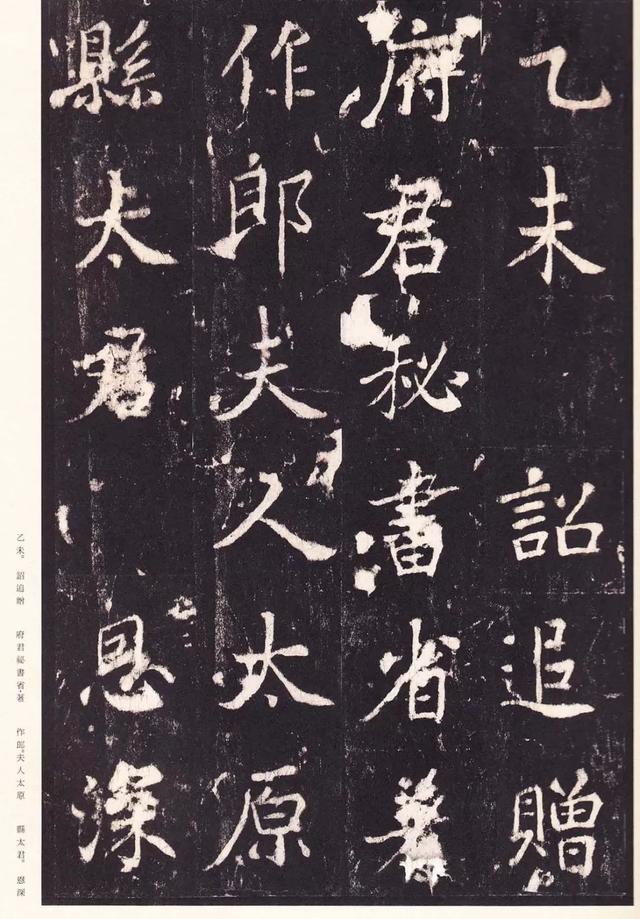 乙未 詔追贈
府君秘書省著
作郎夫人太原
縣太君 恩深
乙未。詔追贈 府君祕書省·著 作郎。夫人太原 縣太君。恩深